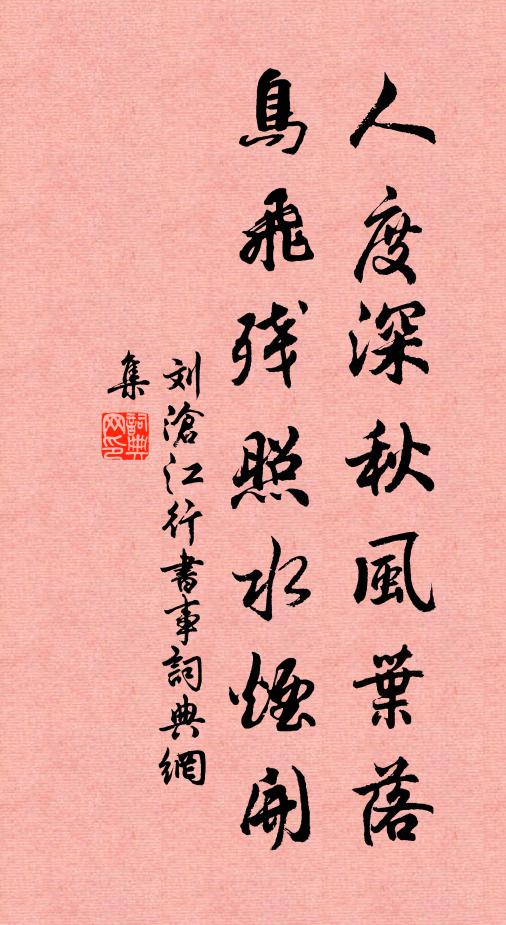 人度深秋風葉落
鳥飛残照水煙開
刘滄江行書事詞典網
集
詞典
网印